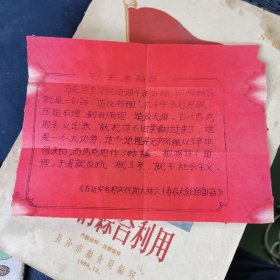 毛主席語錄
馬克思主义的道理千条万緒,归根結底,
就是一句話:造反有理。几千年来总是說,
压迫有理,剝削有理,造反无理。自从馬克
思主义出来,就把这个旧案翻过来了,这
是一个大功劳。这个道理是无产阶級从斗爭中
得来的,而馬克思作了結論。根据这个道
理,于是就反抗,就斗爭,就干社会主义。
《在延安各界庆祝斯大林六十寿辰大会上的讲話》
綜合利用
市粮食局編印